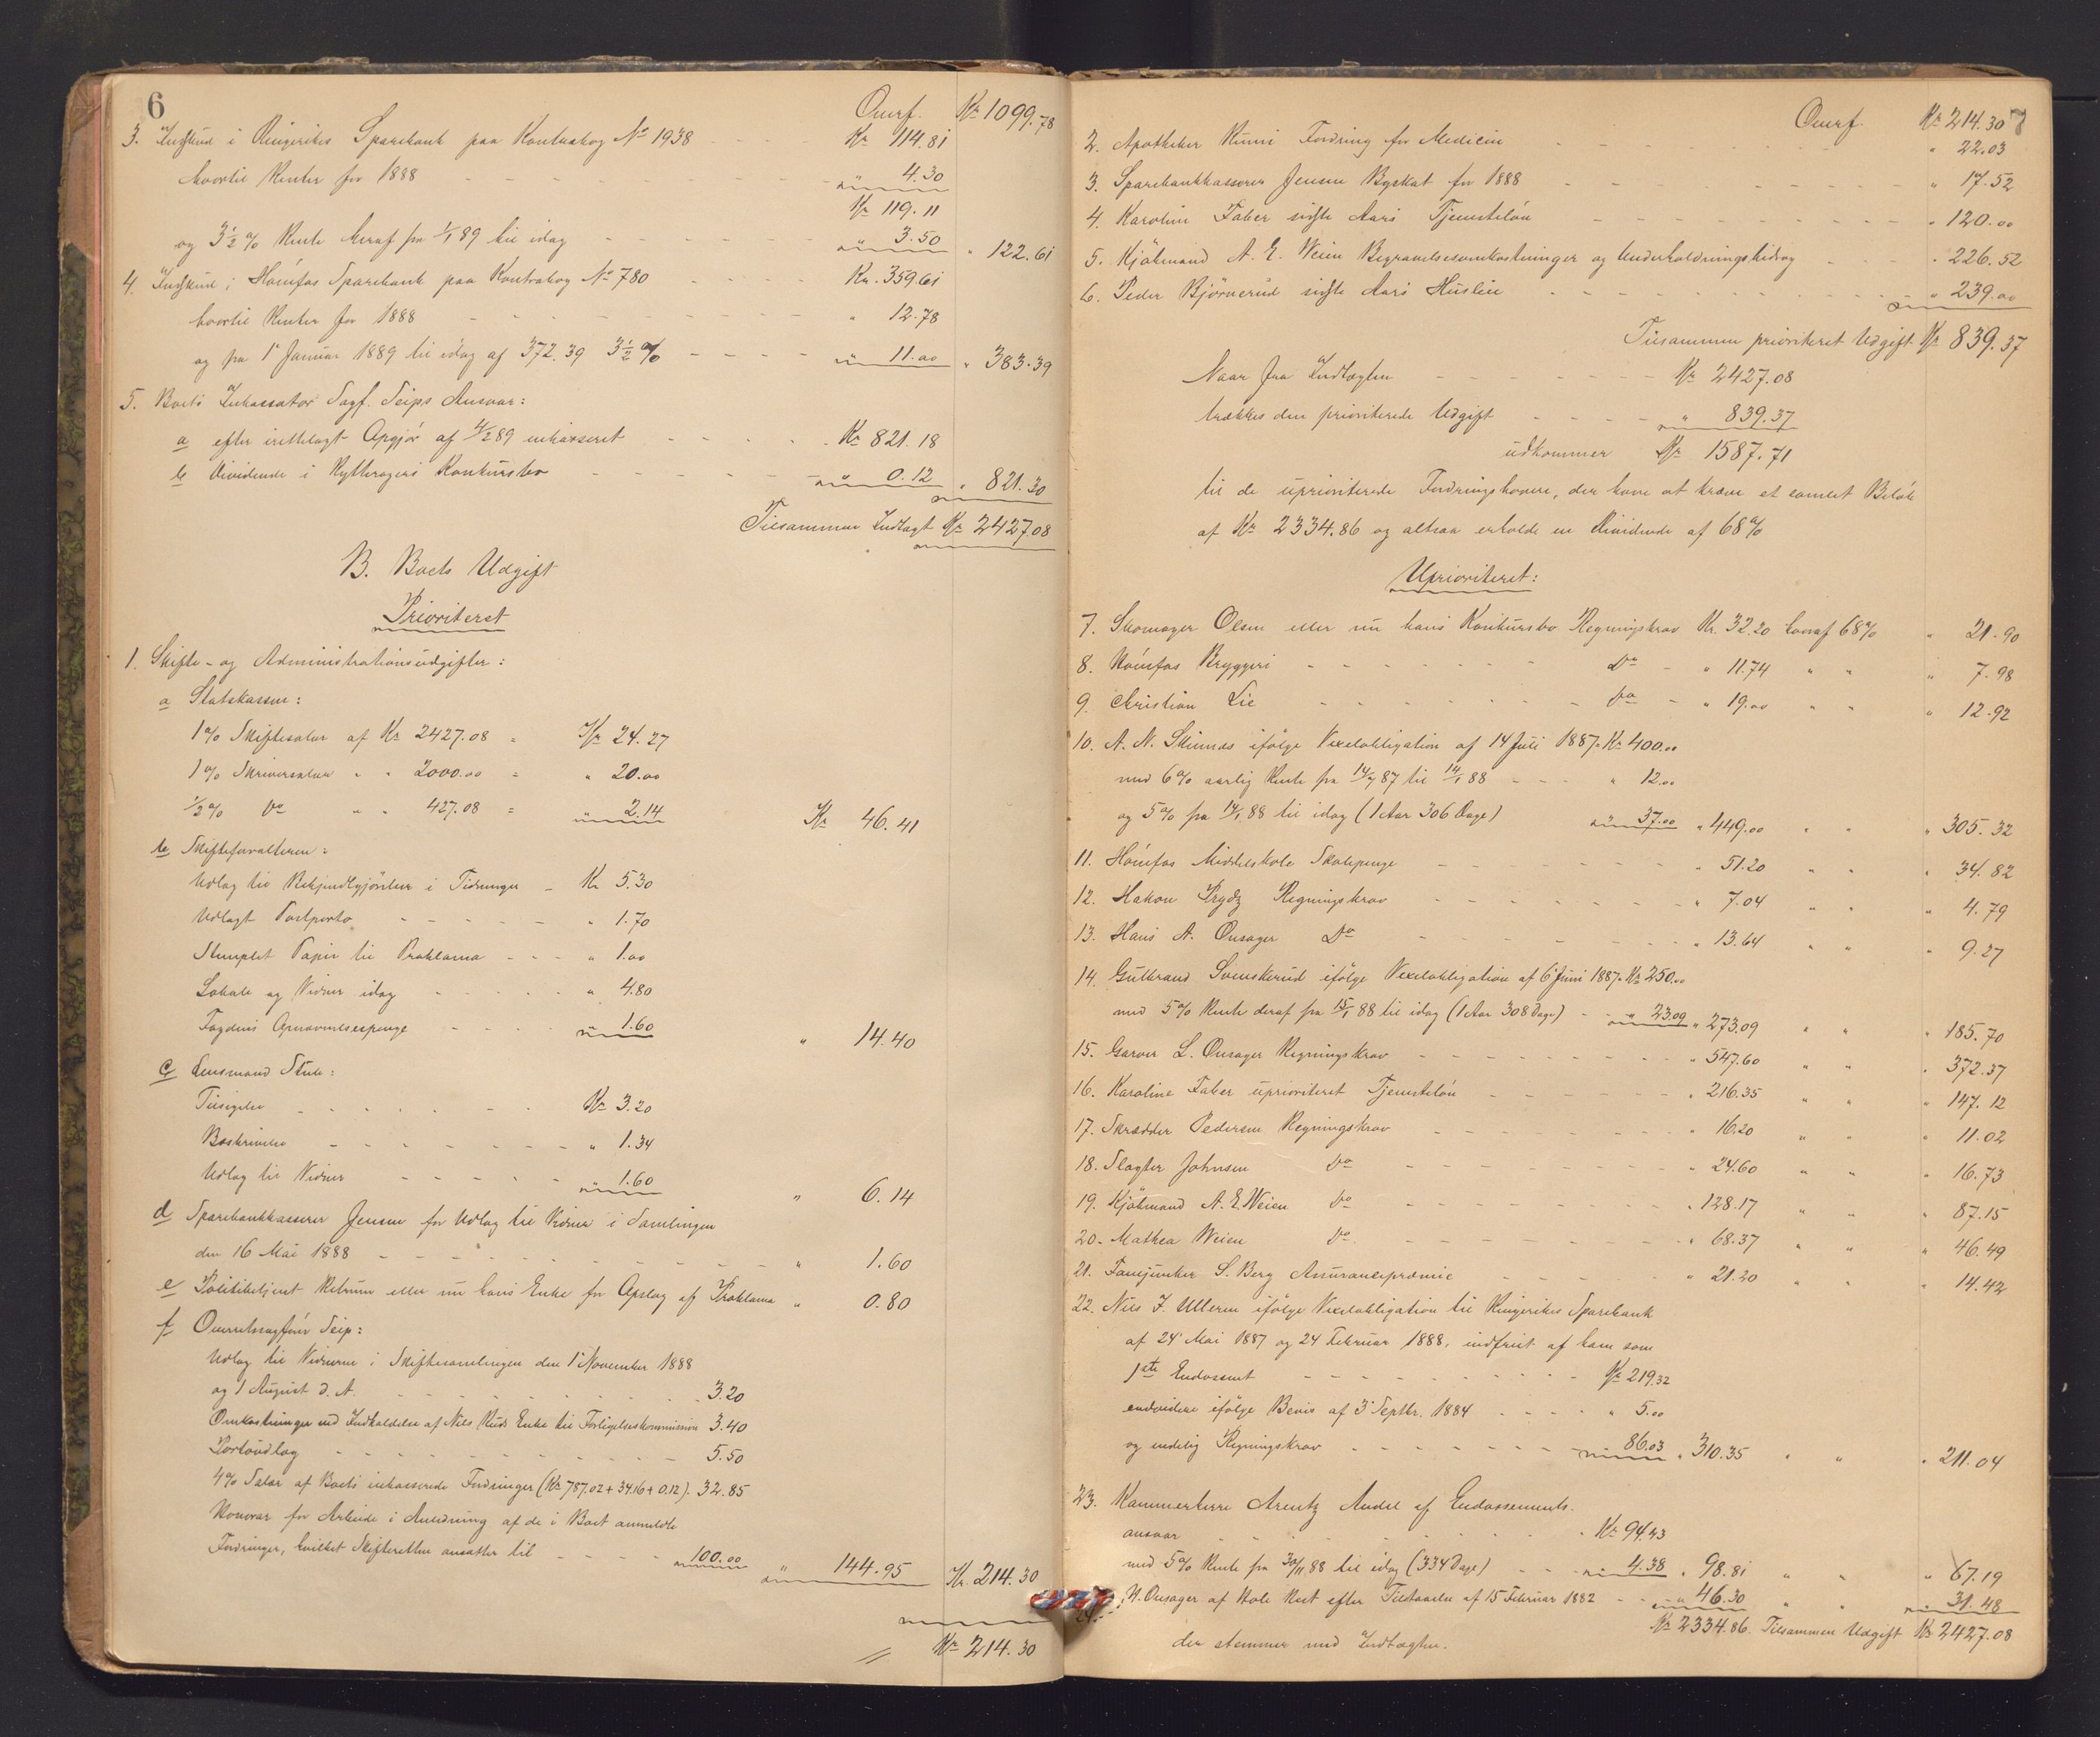 6
Overf. Kr 1099.78
3. Indskud i Ringerikes Sparebank paa Kontrabog No 1938 Kr 114.81
hvortil Renter for 1888 " 4.30
Kr 119.11
og 3½ % Rente heraf fra 1/1 89 til idag " 3.50 " 122.61
4. Indskud i Hönefos Sparebank paa Kontrabog No 780 Kr. 359.61
hvortil Renter for 1888 " 12.78
og fra 1 Januar 1889 til idag af 372.39 3½ % " 11.00 " 383.39
5. Boets Inkassator Sagf. Seips Ansvar:
a efter irettelagt Opgjör af 4/2 89 inkasseret Kr 821.18
b Dividende i Konkursbo " 0.12 " 821.30
Tilsammen Indtægt Kr 2427.08
B. Boets Udgift
Prioriteret
1. Skifte- og Administrationsudgifter:
a Statskassen:
1% Skiftesalær af Kr 2427.08 = Kr 24.27
1% Skriversalær " " 2000.00 = " 20.00
½% Do " " 427.08 = " 2.14 Kr 46.41
b Skifteforvalteren:
Udlag til Bekjendtgjörelser i Tidninger Kr 5.30
Udlagt Postporto " 1.70
Stemplet Papir til Proklama " 1.00
Lokale og Vidner idag " 4.80
Fogdens Opnævnelsespenge " 1.60 " 14.40
c Lensmand Stub:
Tilsigelse Kr 3.20
Beskrivelse " 1.34
Udlag til Vidner " 1.60 " 6.14
d Sparebankkasserer Jensen for Udlag til Vidner i Samlingen
den 16 Mai 1888 " 1.60
e Politibetjent eller nu hans Enke for Opslag af Proklama " 0.80
f Overretssagförer Seip:
Udlag til Vidnerne i Skiftesamlingen den 1 November 1888
og 1 August d. A. 3.20
Omkostninger ved Indkaldelse af Niels Ruds Enke til Forligelseskommission 3.40
Portoudlag 5.50
4% Salær af Boets inkasserede Fordringer (Kr 787.02 + 34.16 + 0.12) 32.85
Honorar for Arbeide i Anledning af de i Boet anmeldte
Fordringer, hvilket Skifteretten ansætter til 100.00 " 144.95 Kr. 214.30
Kr 214.30
7
Overf. Kr 214.30
2. Apotheker Fordring for Medicin " 22.03
3. Sparebankkasserer Jensen Byskat for 1888 " 17.52
4. Karoline Faber sidste Aars Tjenestelön " 120.00
5. Kjöbmand A. E. Weien Begravelsesomkostninger og Underholdningsbidrag " 226.52
6. Peder Björnerud sidste Aars Husleie " 239.00
Tilsammen prioriteret Udgift Kr 839.37
Naar fra Indtægten Kr 2427.08
trækkes den prioriterede Udgift " 839.37
udkommer Kr 1587.71
til de uprioriterede Fordringshavere, der have at kræve et samlet Belöb
af Kr 2334.86 og altsaa erholde en Dividende af 68%
Uprioriteret:
7. Skomager Olsen eller nu hans Konkursbo Regningskrav Kr. 32.20 hvoraf 68% " 21.90
8. Hönefos Bryggeri Do " 11.74 " " " 7.98
9. Christian Lie Do " 19.00 " " " 12.92
10. A. N. ifölge Vexelobligation af 14 Juli 1887 Kr 400.00
med 6% aarlig Rente fra 14/7 87 til 14/1 88 " 12.00
og 5% fra 14/1 88 til idag (1 Aar 306 Dage) " 37.00 " 449.00 " " " 305.32
11. Hönefos Middelskole Skolepenge " 51.20 " " " 34.82
12. Hakon Prydz Regningskrav " 7.04 " " " 4.79
13. Hans A. Onsager Do " 13.64 " " " 9.27
14. Gulbrand Svenskerud ifölge Vexelobligation af 6 Juni 1887 Kr 250.00
med 5% Rente deraf fra 15/1 88 til idag (1 Aar 308 Dage) " 23.09 " 273.09 " " " 185.70
15. Garver L. Onsager Regningskrav " 547.60 " " " 372.37
16. Karoline Faber uprioriteret Tjenestelön " 216.35 " " " 147.12
17. Skrædder Pedersen Regningskrav " 16.20 " " " 11.02
18. Slagter Johnsen Do " 24.60 " " " 16.73
19. Kjöbmand A. E. Weien Do " 128.17 " " " 87.15
20. Mathea Weien Do " 68.37 " " " 46.49
21. S. Berg Assurancepræmie " 21.20 " " " 14.42
22. Niels J. Ulleren ifölge Vexelobligation til Ringerikes Sparebank
af 24 Mai 1887 og 24 Februar 1888, indfriet af ham som
1ste Endossent Kr 219.32
endvidere ifölge Bevis af 3 Septbr. 1884 " 5.00
og endelig Regningskrav " 86.03 " 310.35 " " " 211.04
23. Kammerherre Arentz Andel af Endossements-
ansvar Kr 94.43
med 5% Rente fra 30/11 88 til idag (334 Dage) " 4.38 " 98.81 " " " 67.19
24. N. Onsager af Hole Rest efter Tilstaaelse af 15 Februar 1882 " 46.30 " " " 31.48
Kr 2334.86 Tilsammen Udgift Kr 2427.08
der stemmer med Indtægten.